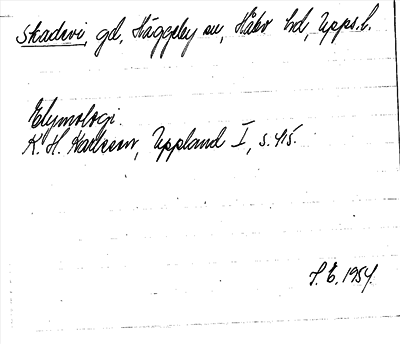 Skadevi, gd, Häggeby sn, Håbo hd, Upps.l.
Etymologi.
K. H. Karlsson, Uppland I, s. 415.
S. E. 1954.